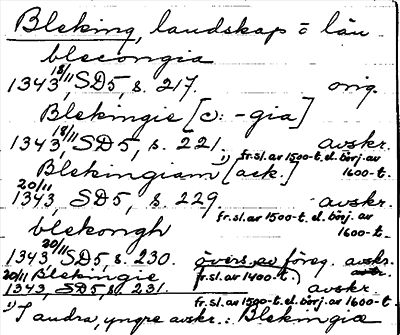 Bleking, landskap o län
blecongia
1343 18/11, SD5, s. 217. orig.
Blekingie [ɔ: -gia]
1343 18/11, SD5, s. 221. avskr.
fr. sl. av 1500-t. el. börj. av 1600-t.
Blekingiam 1) [ack.]
1343 20/11, SD5, s. 229 avskr.
fr. sl. av 1500-t. el. börj. av 1600-t.
blekongh
1343 20/11 SD5, s. 230. övers. av föreg. avskr.
(fr. sl. av 1400-t.)
20/11 Blekingie
1343, SD5, s. 231. avskr.
fr. sl. av 1500-t. el. börj. av 1600-t.
1) I andra, yngre avskr.: Blekingia